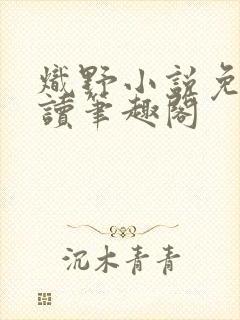 熾野小說免
讀筆趣閣
沉木青青